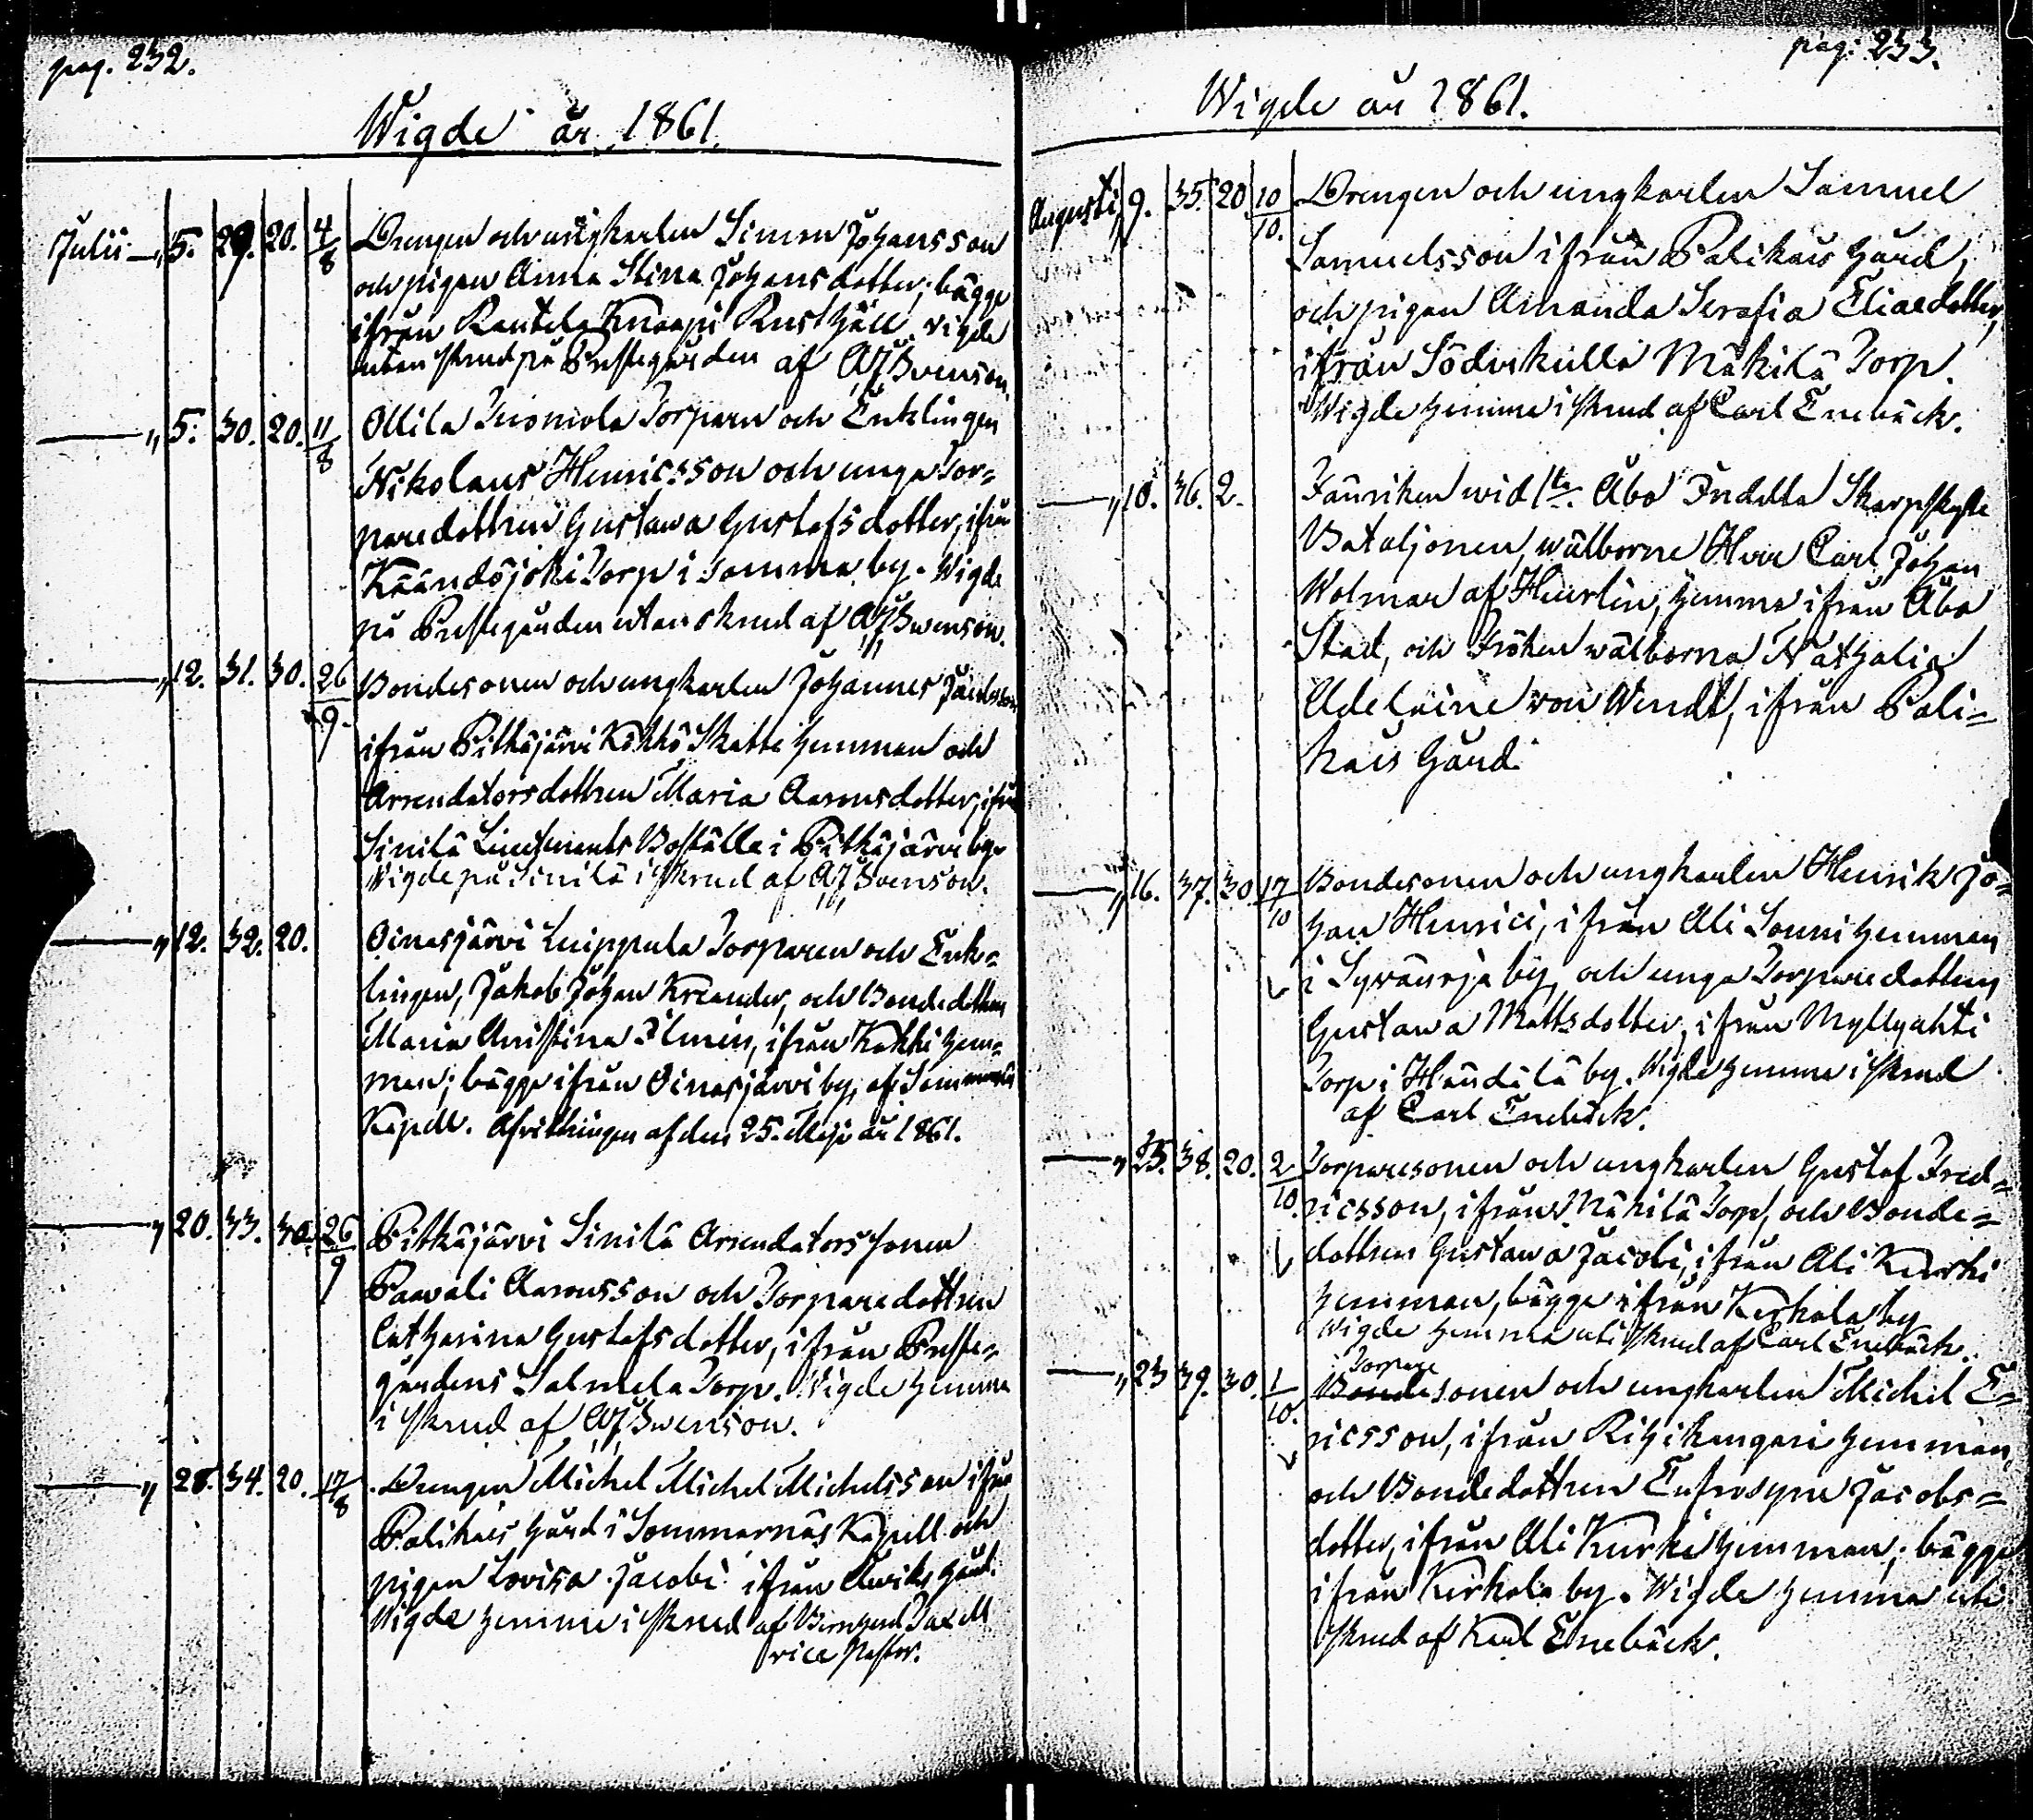 pag. 232.
Wigde år 1861.
Julii — „ 5. 29. 20. 4/8 Drengen och ungkarlen Simon Johansson
och pigan Anna Stina Johansdotter, bägge
ifrån Rautela Knaapi Rusthåll. Vigde
utan skrud på Prestegården af A J Svenson.
— „ 5. 30. 20. 11/8 Ollila Torparen och Enklingen
Nikolaus Henricsson och unga Tor=
paredottren Gustawa Gustafsdotter, ifrån
Käändöjoki Torp i samma by. Wigde
på Prestegården utan skrud af A J Swenson.
— „ 12. 31. 30. 26/9. Bondesonen och ungkarlen Johannes Jacobsson
ifrån Pitkäjärvi Kökkö Skatte hemman och
Arrendatorsdottren Maria Aaronsdotter, ifrån
Sinilä Lieutnants Boställe i Pitkäjärvi by.
Vigde på Sinilä i skrud af A J Svenson.
— „ 12. 32. 20. Oinasjärvi Torparen och Enk=
lingen, Jakob Johan Kreander, och Bondedottren
Maria Christina Ilmén, ifrån Kokki hem=
man; bägge ifrån Oinasjärvi by, af Sommernäs
Kapell. Afvittringen af den 25. Maji år 1861.
— „ 20. 33. 30. 26/9 Pitkäjärvi Sinilä Arrendators sonen
Paavali Aaronsson och Torparedottren
Catharina Gustafsdotter, ifrån Preste=
gårdens Salmela Torp. Wigde hemma
i skrud af A J Swenson.
— „ 28. 34. 20. 17/8 Drengen Michel Michel Michelsson ifrån
Palikais Gård i Sommarnäs Kapell och
pigan Lovisa Jacobi ifrån Gård.
Wigde hemma i skrud af
vice Pastor.
pag: 233.
Wigde år 1861.
Augusti „ 9. 35. 20. 10/10. Drengen och ungkarlen Samuel
Samuelsson ifrån Palikais Gård,
och pigan Amanda Serafia Eliaedotter,
ifrån Söderkulla Mäkilä Torp.
Wigde hemma i skrud af Carl Enebäck.
— „ 10. 36. 2. Fänriken wid 1sta Åbo Indelta Skarpskytte
Bataljonen, wälborne Herr Carl Johan
Wolmar af Heurlin, hemma ifrån Åbo
Stad, och Fröken wälborna Nathalia
Adelaine von Wendt, ifrån Pali=
kais Gård
— „ 16. 37. 30. 17/10 Bondesonen och ungkarlen Henrik Jo=
han Henrici, ifrån Ali Sonni hemman
i Syvänoja by, och unga Torparedottren
Gustawa Mattsdotter, ifrån Myllyahti
Torp i Häntälä by. Wigde hemma i skrud
af Carl Enebäck.
— „ 23. 38. 20. 2/10. Torparesonen och ungkarlen Gustaf Fred=
ricsson, ifrån Mäkilä Torp, och Bonde=
dottren Gustawa Jacobi, ifrån Ali Kurki
hemman, bägge ifrån Kerkola by
Wigde hemma uti skrud af Carl Enebäck.
Torpare
— „ 23 39. 30. 1/10. Bondesonen och ungkarlen Michel E=
ricsson, ifrån Rihikangari hemman,
och Bondedottren Eufrosyne Jacobs=
dotter, ifrån Ali Kurki hemman; bägge
ifrån Kerkola by. Wigde hemma uti
skrud af Karl Enebäck.